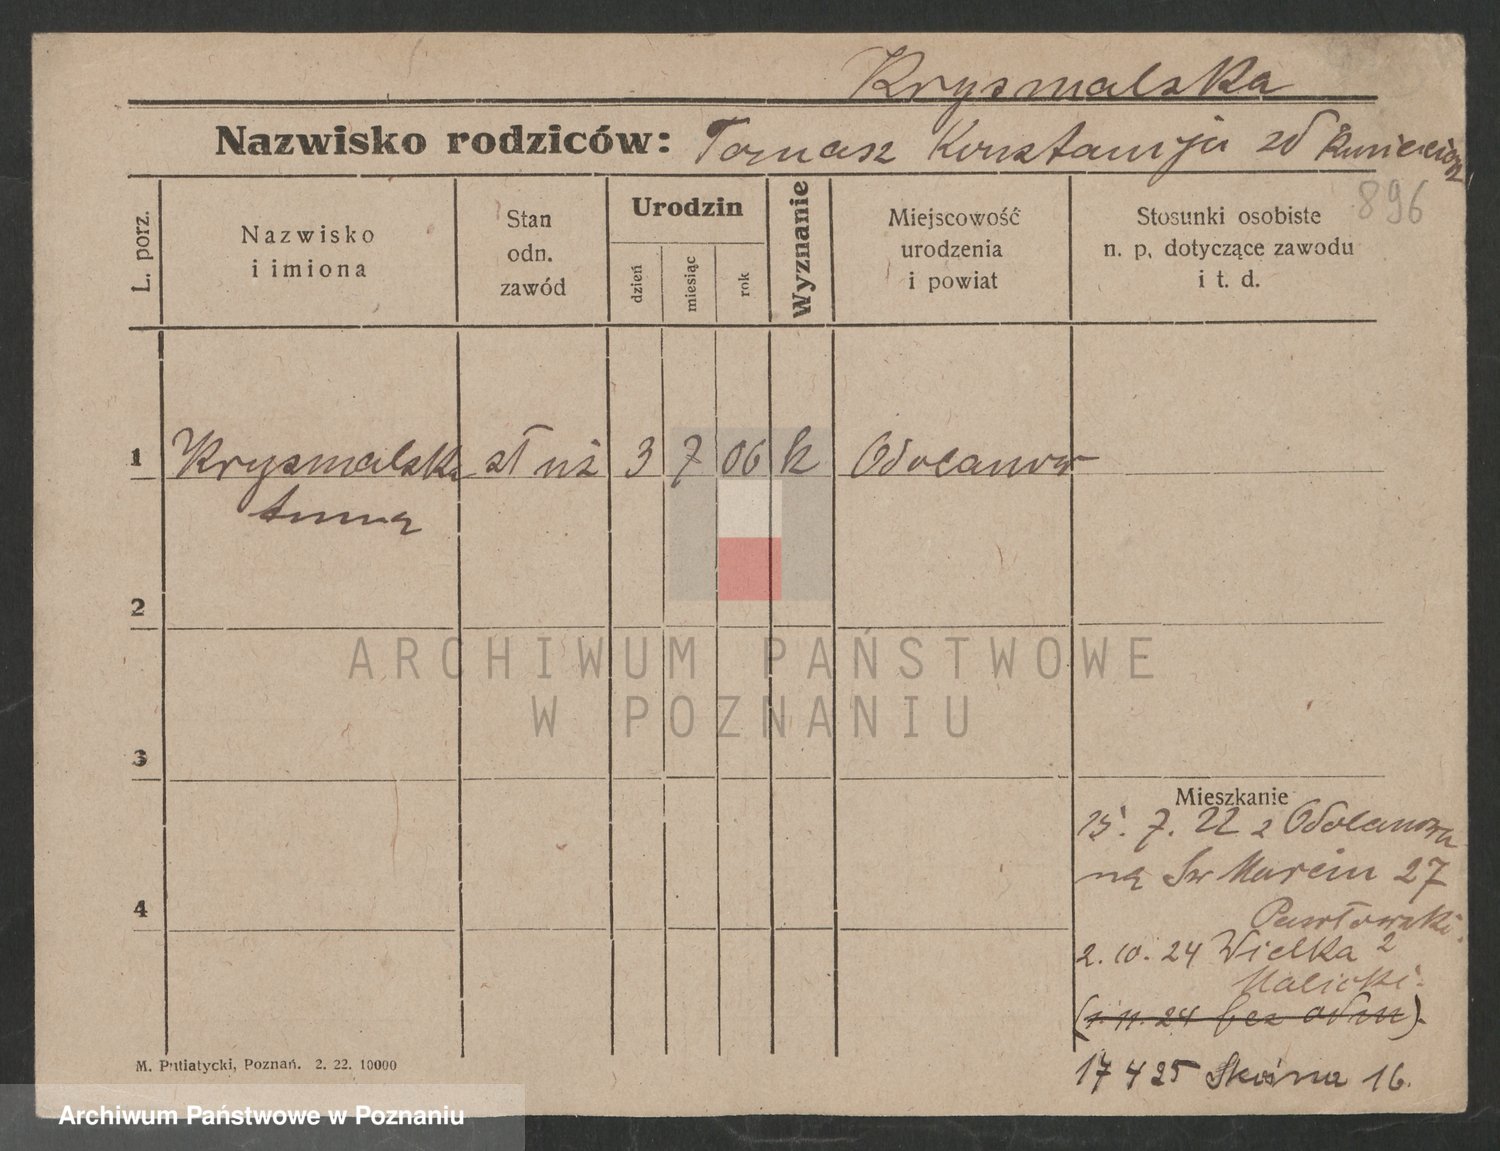 Krysmalska
Nazwisko rodziców: Tomasz Konstancja zd
896
L. porz.
Nazwisko
i imiona
Stan
odn.
zawód
Urodzin
dzień
miesiąc
rok
Wyznanie
Miejscowość
urodzenia
i powiat
Stosunki osobiste
n. p. dotyczące zawodu
i t. d.
1 Krysmalska służ 3 7 06 k Odolanow
Anna
2
3
4
Mieszkanie
15. 7. 22 z Odolanowa
na Św Marcin 27
Pawłowski.
2. 10. 24 Wielka 2
Malicki.
(1. 11. 24 bez odm).
17 4 25 Skośna 16.
M. Putiatycki, Poznań. 2. 22. 10000
ARCHIWUM PAŃSTWOWE
W POZNANIU
Archiwum Państwowe w Poznaniu